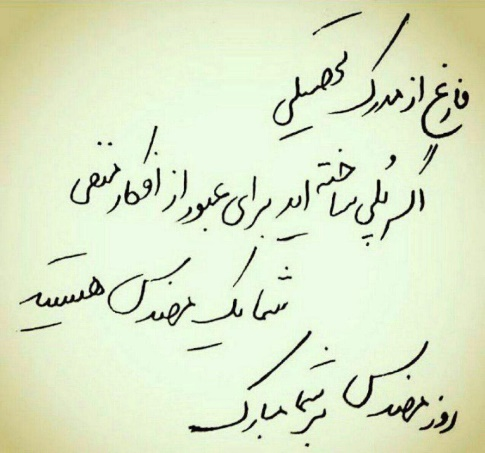 فارغ از مدرک تحصیلی
اگر پُلی ساخته اید برای عبور از افکار منفی
شما یک مهندس هستید
روز مهندس بر شما مبارک